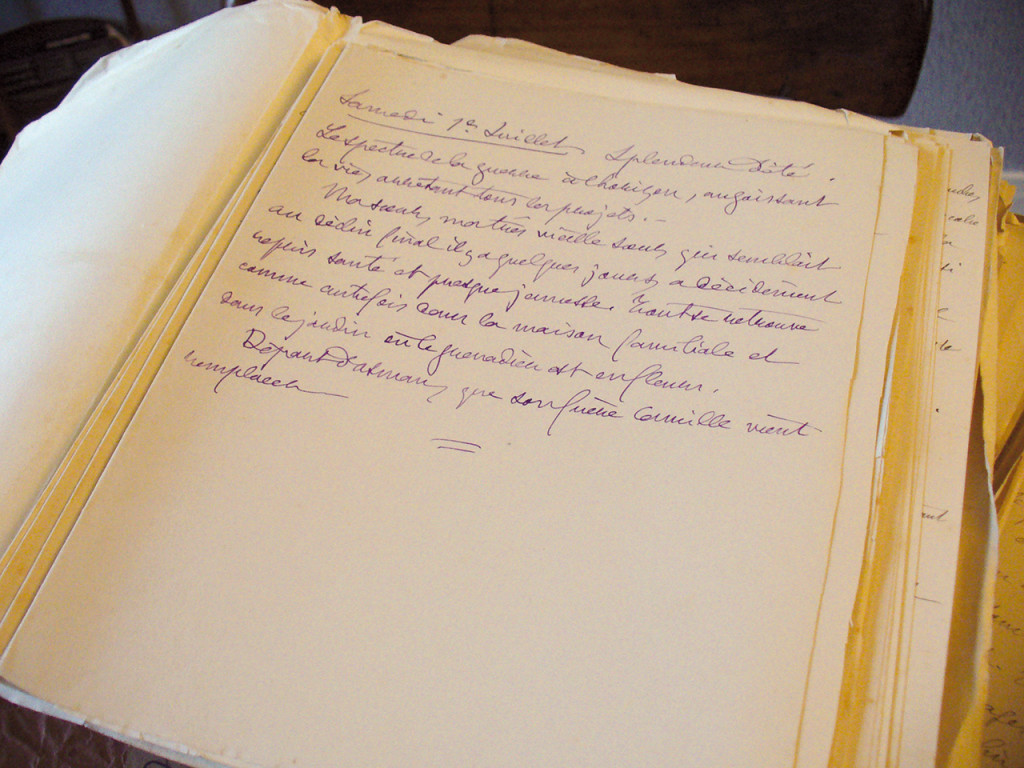 Samedi 1er Juillet. Splendeur d'été.
Le spectre de la guerre à l'horizon, angoissant
la vie, arrêtant tous les projets. –
Ma sœur, ma très vieille sœur, qui semblait
au déclin final il y a quelques jours, a décidément
repris santé et presque jeunesse. Tout se retrouve
comme autrefois dans la maison familiale et
dans le jardin où le grenadier est en fleurs.
Départ d'Osman, que son frère Camille vient
remplacer